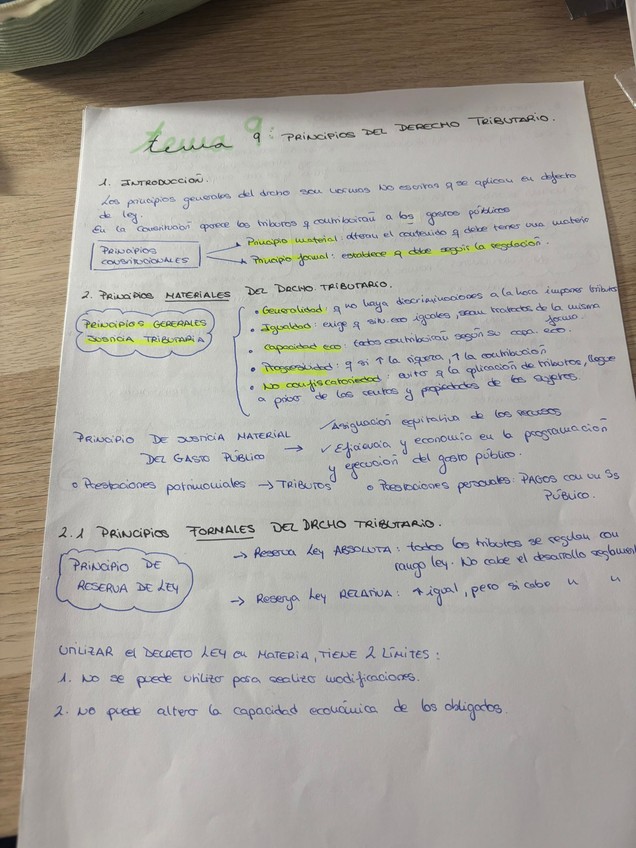 tema 9: PRINCIPIOS DEL DERECHO TRIBUTARIO.
1. INTRODUCCIÓN.
Los principios generales del drcho son normas no escritas q se aplican en defecto
de ley.
En la constitución aparece los tributos q contribuirán a los gastos públicos
PRINCIPIOS CONSTITUCIONALES
Principio material: alteran el contenido q debe tener una materia
Principio formal: establece q debe seguir la regulación.
2. PRINCIPIOS MATERIALES DEL DRCHO TRIBUTARIO.
PRINCIPIOS GENERALES
JUSTICIA TRIBUTARIA
• Generalidad: q no haya discriminaciones a la hora imponer tributos
• Igualdad: exige q sin eco iguales, sean tratados de la misma
forma.
• Capacidad eco: todos contribuirán según su capa. eco.
• Progresividad: q si ↑ la riqueza, ↑ la contribución
• No confiscatoriedad: evita q la aplicación de tributos, llegue
a privar de las rentas y propiedades de los sujetos.
PRINCIPIO DE JUSTICIA MATERIAL
DEL GASTO PÚBLICO →
✓ Asignación equitativa de los recursos
✓ Eficiencia y economía en la programación
y ejecución del gasto público.
o Prestaciones patrimoniales → TRIBUTOS
o Prestaciones personales: PAGOS con un Ss
PÚBLICO.
2.1 PRINCIPIOS FORMALES DEL DRCHO TRIBUTARIO.
PRINCIPIO DE
RESERVA DE LEY
→ Reserva Ley ABSOLUTA: todos los tributos se regulan con
rango ley. No cabe el desarrollo reglament
→ Reserva Ley RELATIVA: igual, pero si cabe " "
UTILIZAR el DECRETO LEY en MATERIA, TIENE 2 LÍMITES:
1. No se puede utilizar para realizar modificaciones.
2. No puede alterar la capacidad económica de los obligados.